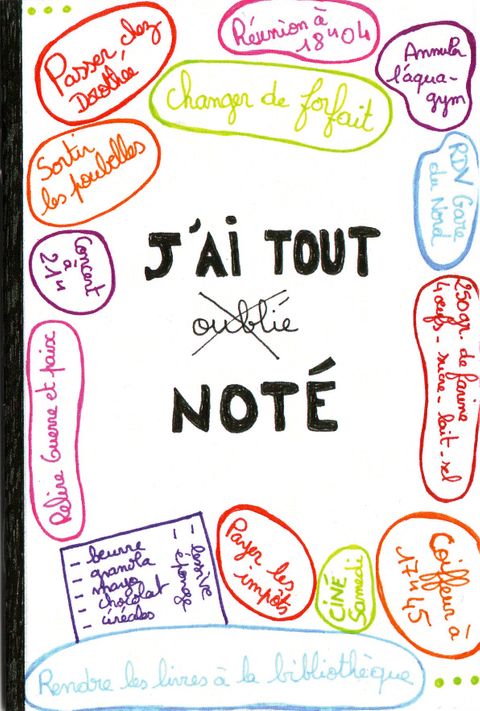 Passer chez
Dorothée
Réunion à
18h04
Annuler
l'aqua-
gym
Changer de forfait
Sortir
les poubelles
RDV Gare
du Nord
Concert
à
21h
J'AI TOUT
oublié
NOTÉ
250gr. de farine
4 œufs - sucre - lait - sel
Relire Guerre et paix
- beurre
- granola
- mayo
- chocolat
- céréales
- lessive
- éponge
Payer les
impôts
CINÉ
Samedi
Coiffeur à
17h45
Rendre les livres à la bibliothèque